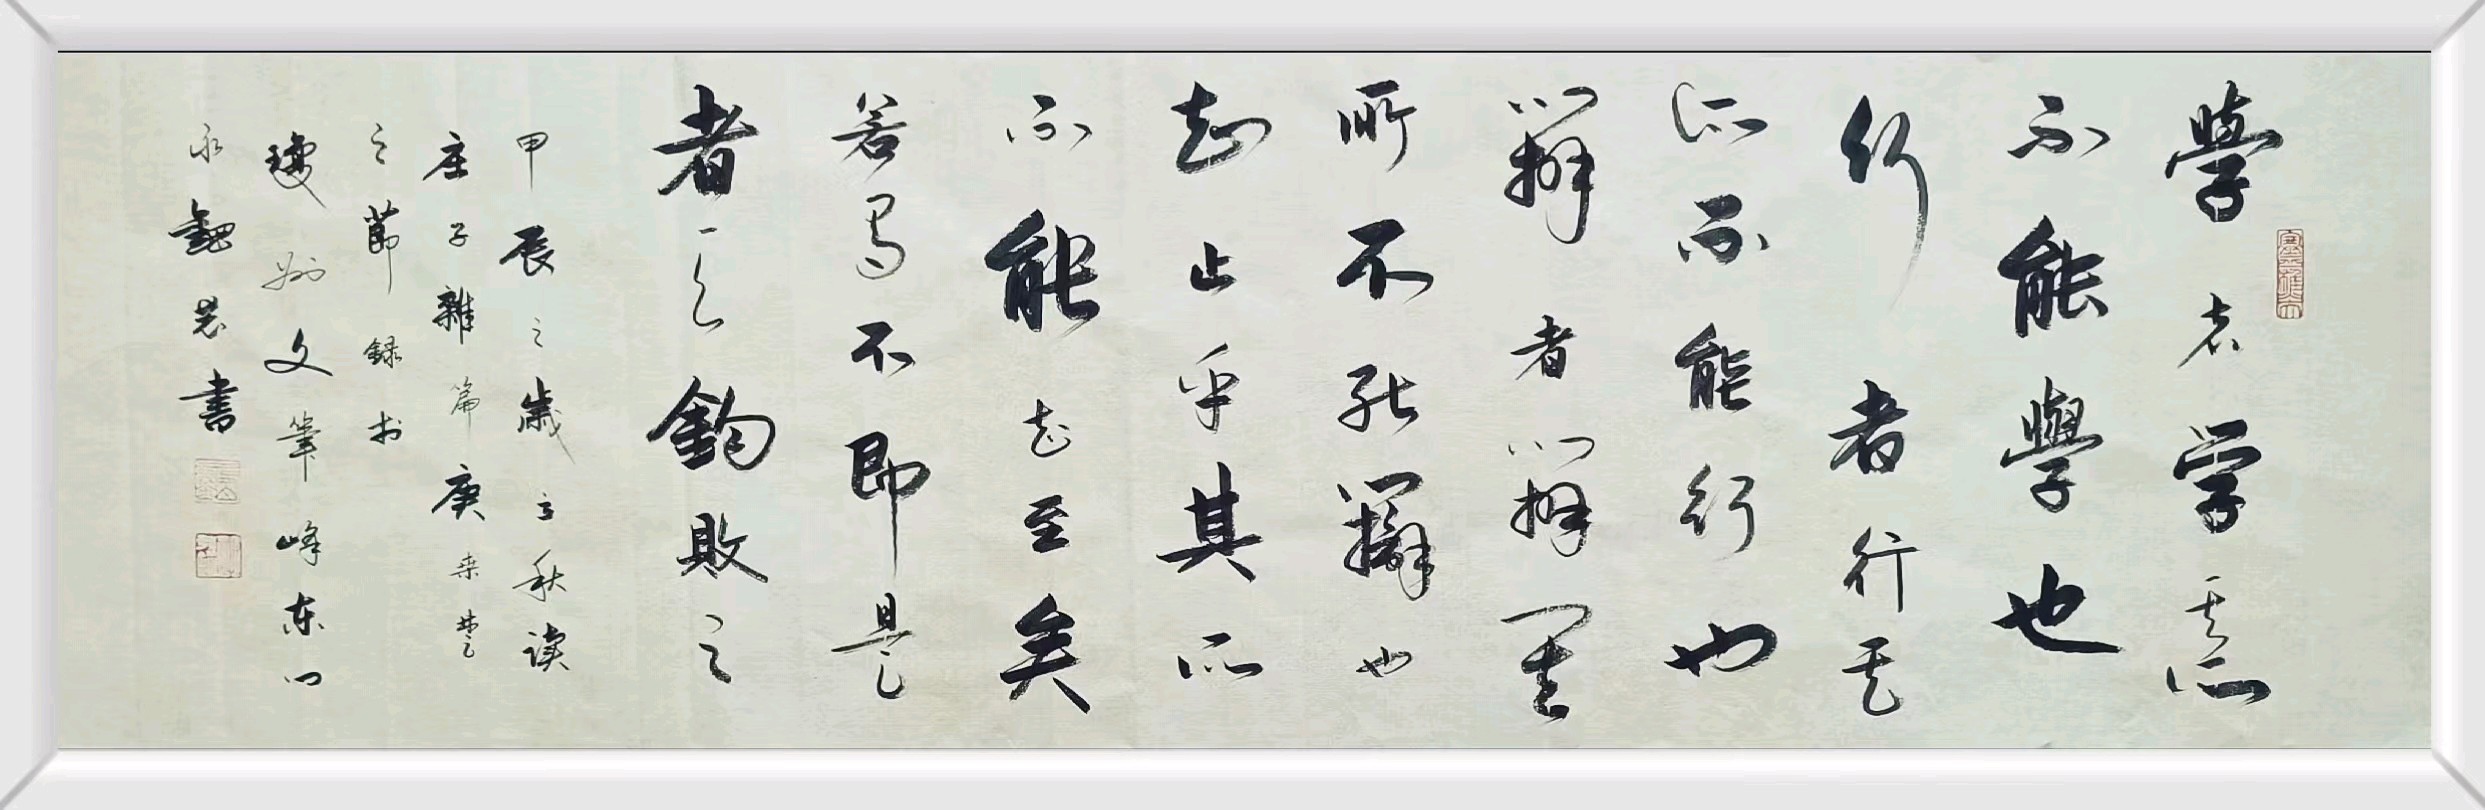 學者学其所
不能學也
行者行其
所不能行也
辯者辯其
所不能辯也
知止乎其所
不能知至矣
若有不即是
者天鈞敗之
甲辰之歲立秋读
庄子雜篇庚桑楚
之節録於
瓊州文筆峰东门
永書